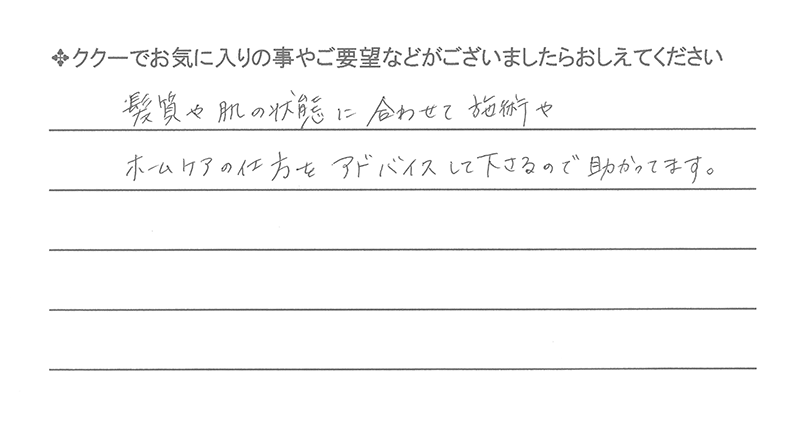 ✥ククーでお気に入りの事やご要望などがございましたらおしえてください
髪質や肌の状態に合わせて施術や
ホームケアの仕方をアドバイスして下さるので助かってます。